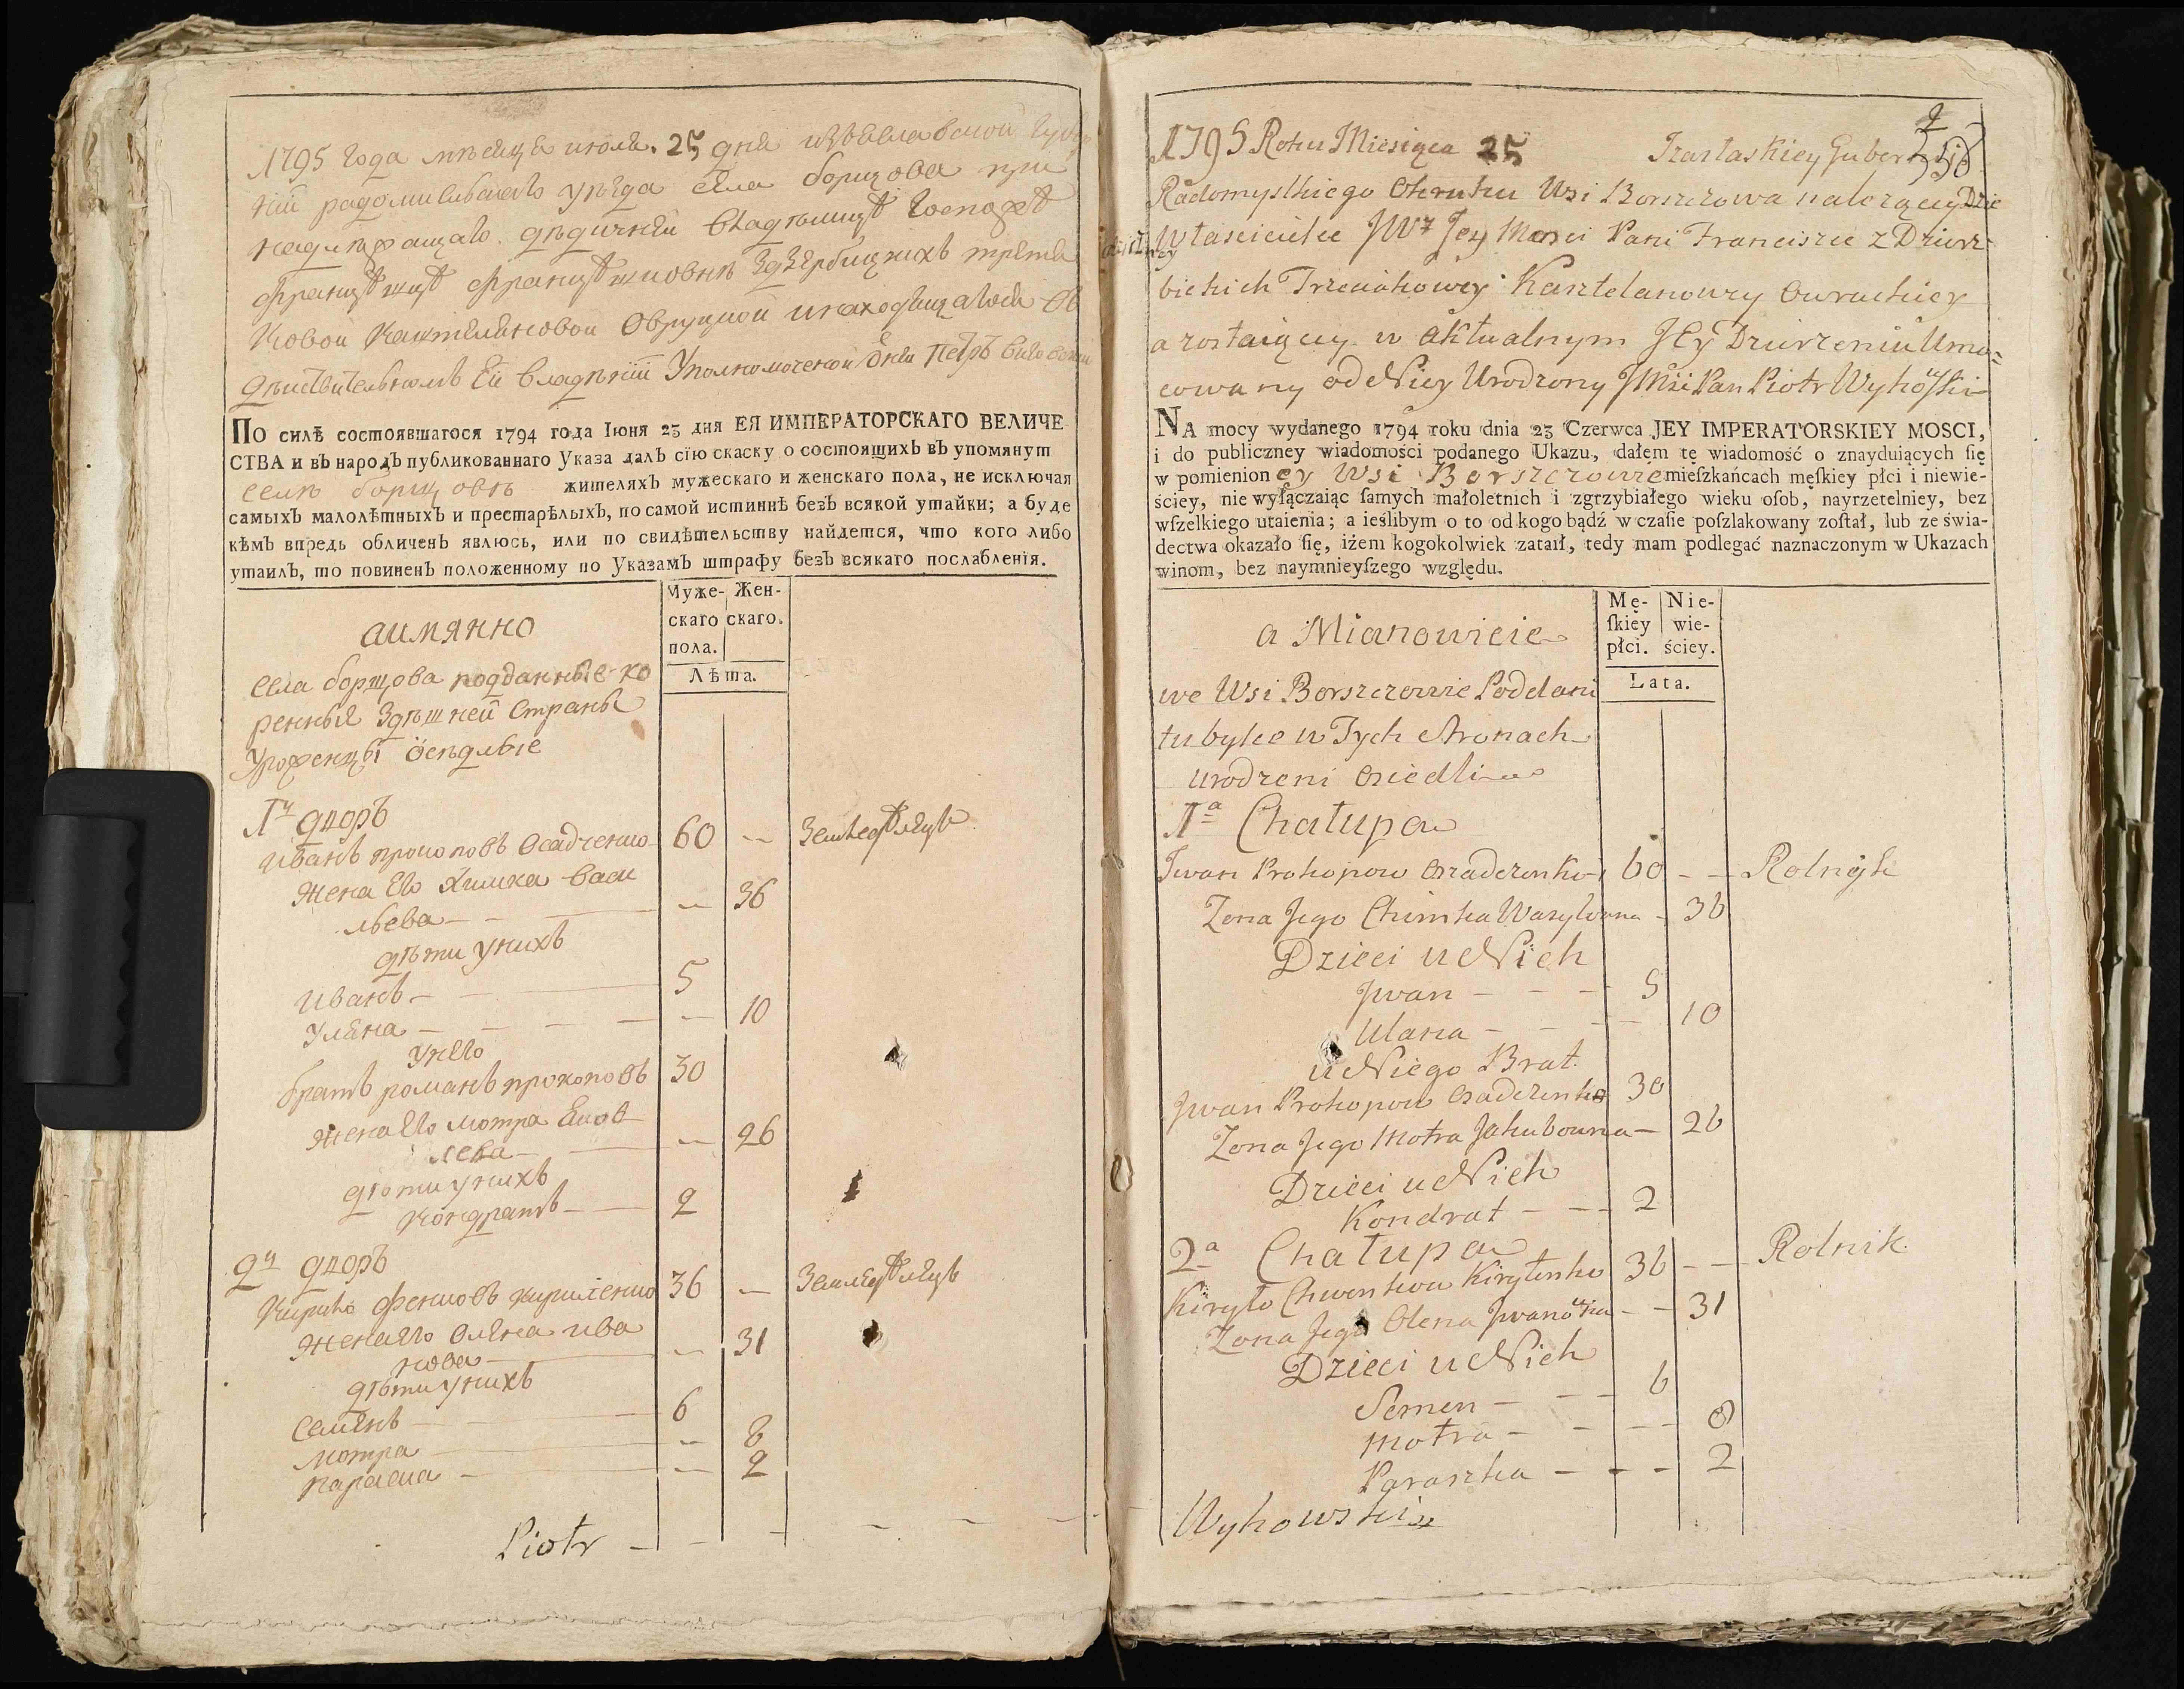 1795 года мѣсяца июля. 25 дня изяславской губер
нїи радомисльскаго уѣзда села борщова при
надлѣжащаго. дѣдичнѣй владѣлицѣ госпожѣ
францѣшцѣ францѣшковнѣ
ковой каштеляновой овруцкой инаходящагося въ
дѣйствительномъ Ей владѣнїи Уполномоченой Петръ
По силѣ состоявшагося 1794 года Іюня 23 дня ЕЯ ИМПЕРАТОРСКАГО ВЕЛИЧЕ
СТВА и въ народъ публикованнаго Указа далъ сїю скаску о состоящихъ въ упомянут
селѣ борщовѣ жителяхъ мужескаго и женскаго пола, не исключая
самыхъ малолѣтныхъ и престарѣлыхъ, по самой истиннѣ безъ всякой утайки; а буде
кѣмъ впредь обличенъ явлюсь, или по свидѣтельству найдется, что кого либо
утаилъ, то повиненъ положенному по Указамъ штрафу безъ всякаго послабленія.
Муже- Жен-
скаго скаго.
пола.
Лѣта.
аимянно
села борщова подданные ко
ренные здѣшней страны
уроженцы осѣдлые
1й дворъ
иванъ прокоповъ осадченко 60 — земледѣлецъ
жена его химка васи
льева — — 36
дѣти унихъ
иванъ — 5
уляна — — 10
унего
братъ романъ прокоповъ 30
жена его мотра яков
лева — — 26
дѣти унихъ
кондратъ — 2
2й дворъ
кирило фенковъ кириленко 36 — земледѣлецъ
жена его олена ива
нова — — 31
дѣти унихъ
семенъ — 6
мотра — — 8
параска — — 2
Piotr —
2
1795 Roku Miesiąca 25 Izasławskiey Gubernij
Radomyslkiego Okruhu Wsi Borszczowa należącey Dzie
dziczney Włascicielce JWJ Jey Mosci Pani Franciszce z Dzierz
bickich Trzeciakowey Kasztelanowey Owruckiey
a zostaiącey w aktualnym Jey Dzierzeniu Umo=
cowany od Niey Urodzony JMsci Pan Piotr Wyhowski
NA mocy wydanego 1794 roku dnia 23 Czerwca JEY IMPERATORSKIEY MOSCI,
i do publiczney wiadomości podanego Ukazu, dałem tę wiadomość o znayduiących ſię
w pomienioney Wsi Borszczowie mieſzkańcach męſkiey płci i niewie-
ściey, nie wyłączaiąc ſamych małoletnich i zgrzybiałego wieku oſob, nayrzetelniey, bez
wſzelkiego utaienia; a ieślibym o to od kogo bądź w czaſie poſzlakowany zoſtał, lub ze świa-
dectwa okazało ſię, iżem kogokolwiek zataił, tedy mam podlegać naznaczonym w Ukazach
winom, bez naymnieyſzego względu.
Mę- Nie-
ſkiey wie-
płci. ściey.
Lata.
a Mianowicie
we Wsi Borszczowie Poddani
tubylce w Tych stronach
urodzeni osiedli
1a Chałupa
Jwan Prokopow Osadczenko 60 — — Rolnik
Zona Jego Chimka Wasylowna — 36
Dzieci u Nich
Jwan — — — 5
Ulana — — — 10
u Niego Brat
Jwan Prokopow Osadczenko 30
Zona Jego Motra Jakubowna — 26
Dzieci u Nich
Kondrat — — 2
2a Chałupa
Kiryło Chwenkow Kiryłenko 36 — — Rolnik.
Zona Jego Olena Jwanowna — — 31
Dzieci u Nich
Semen — — — 6
Motra — — — 8
Paraszka — — — 2
Wyhowski